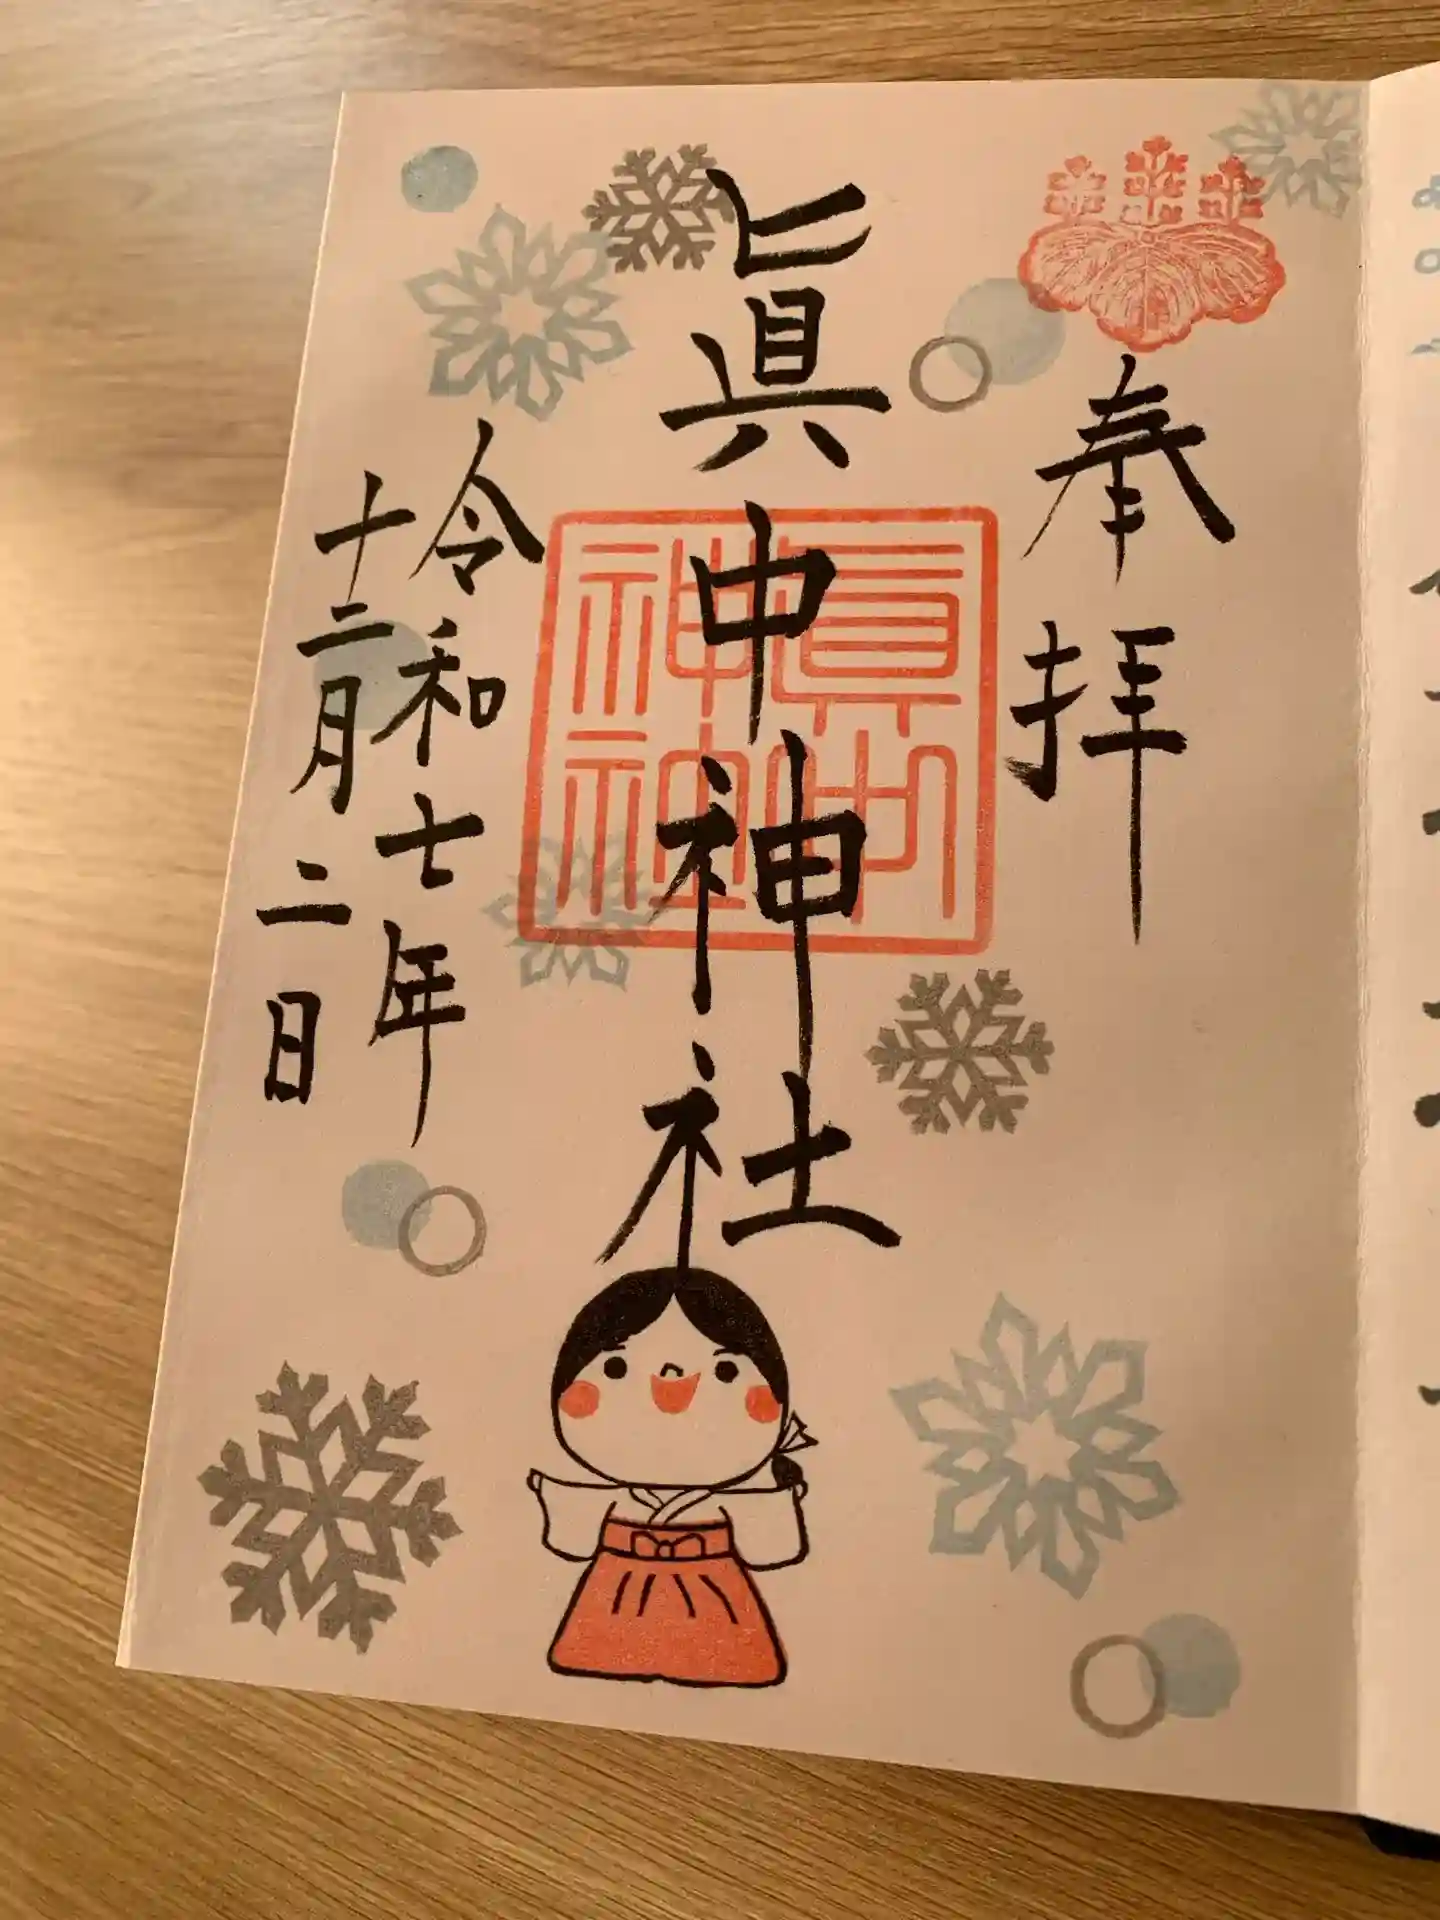 奉拝
眞中神社
眞中
神社
令和七年
十二月二日